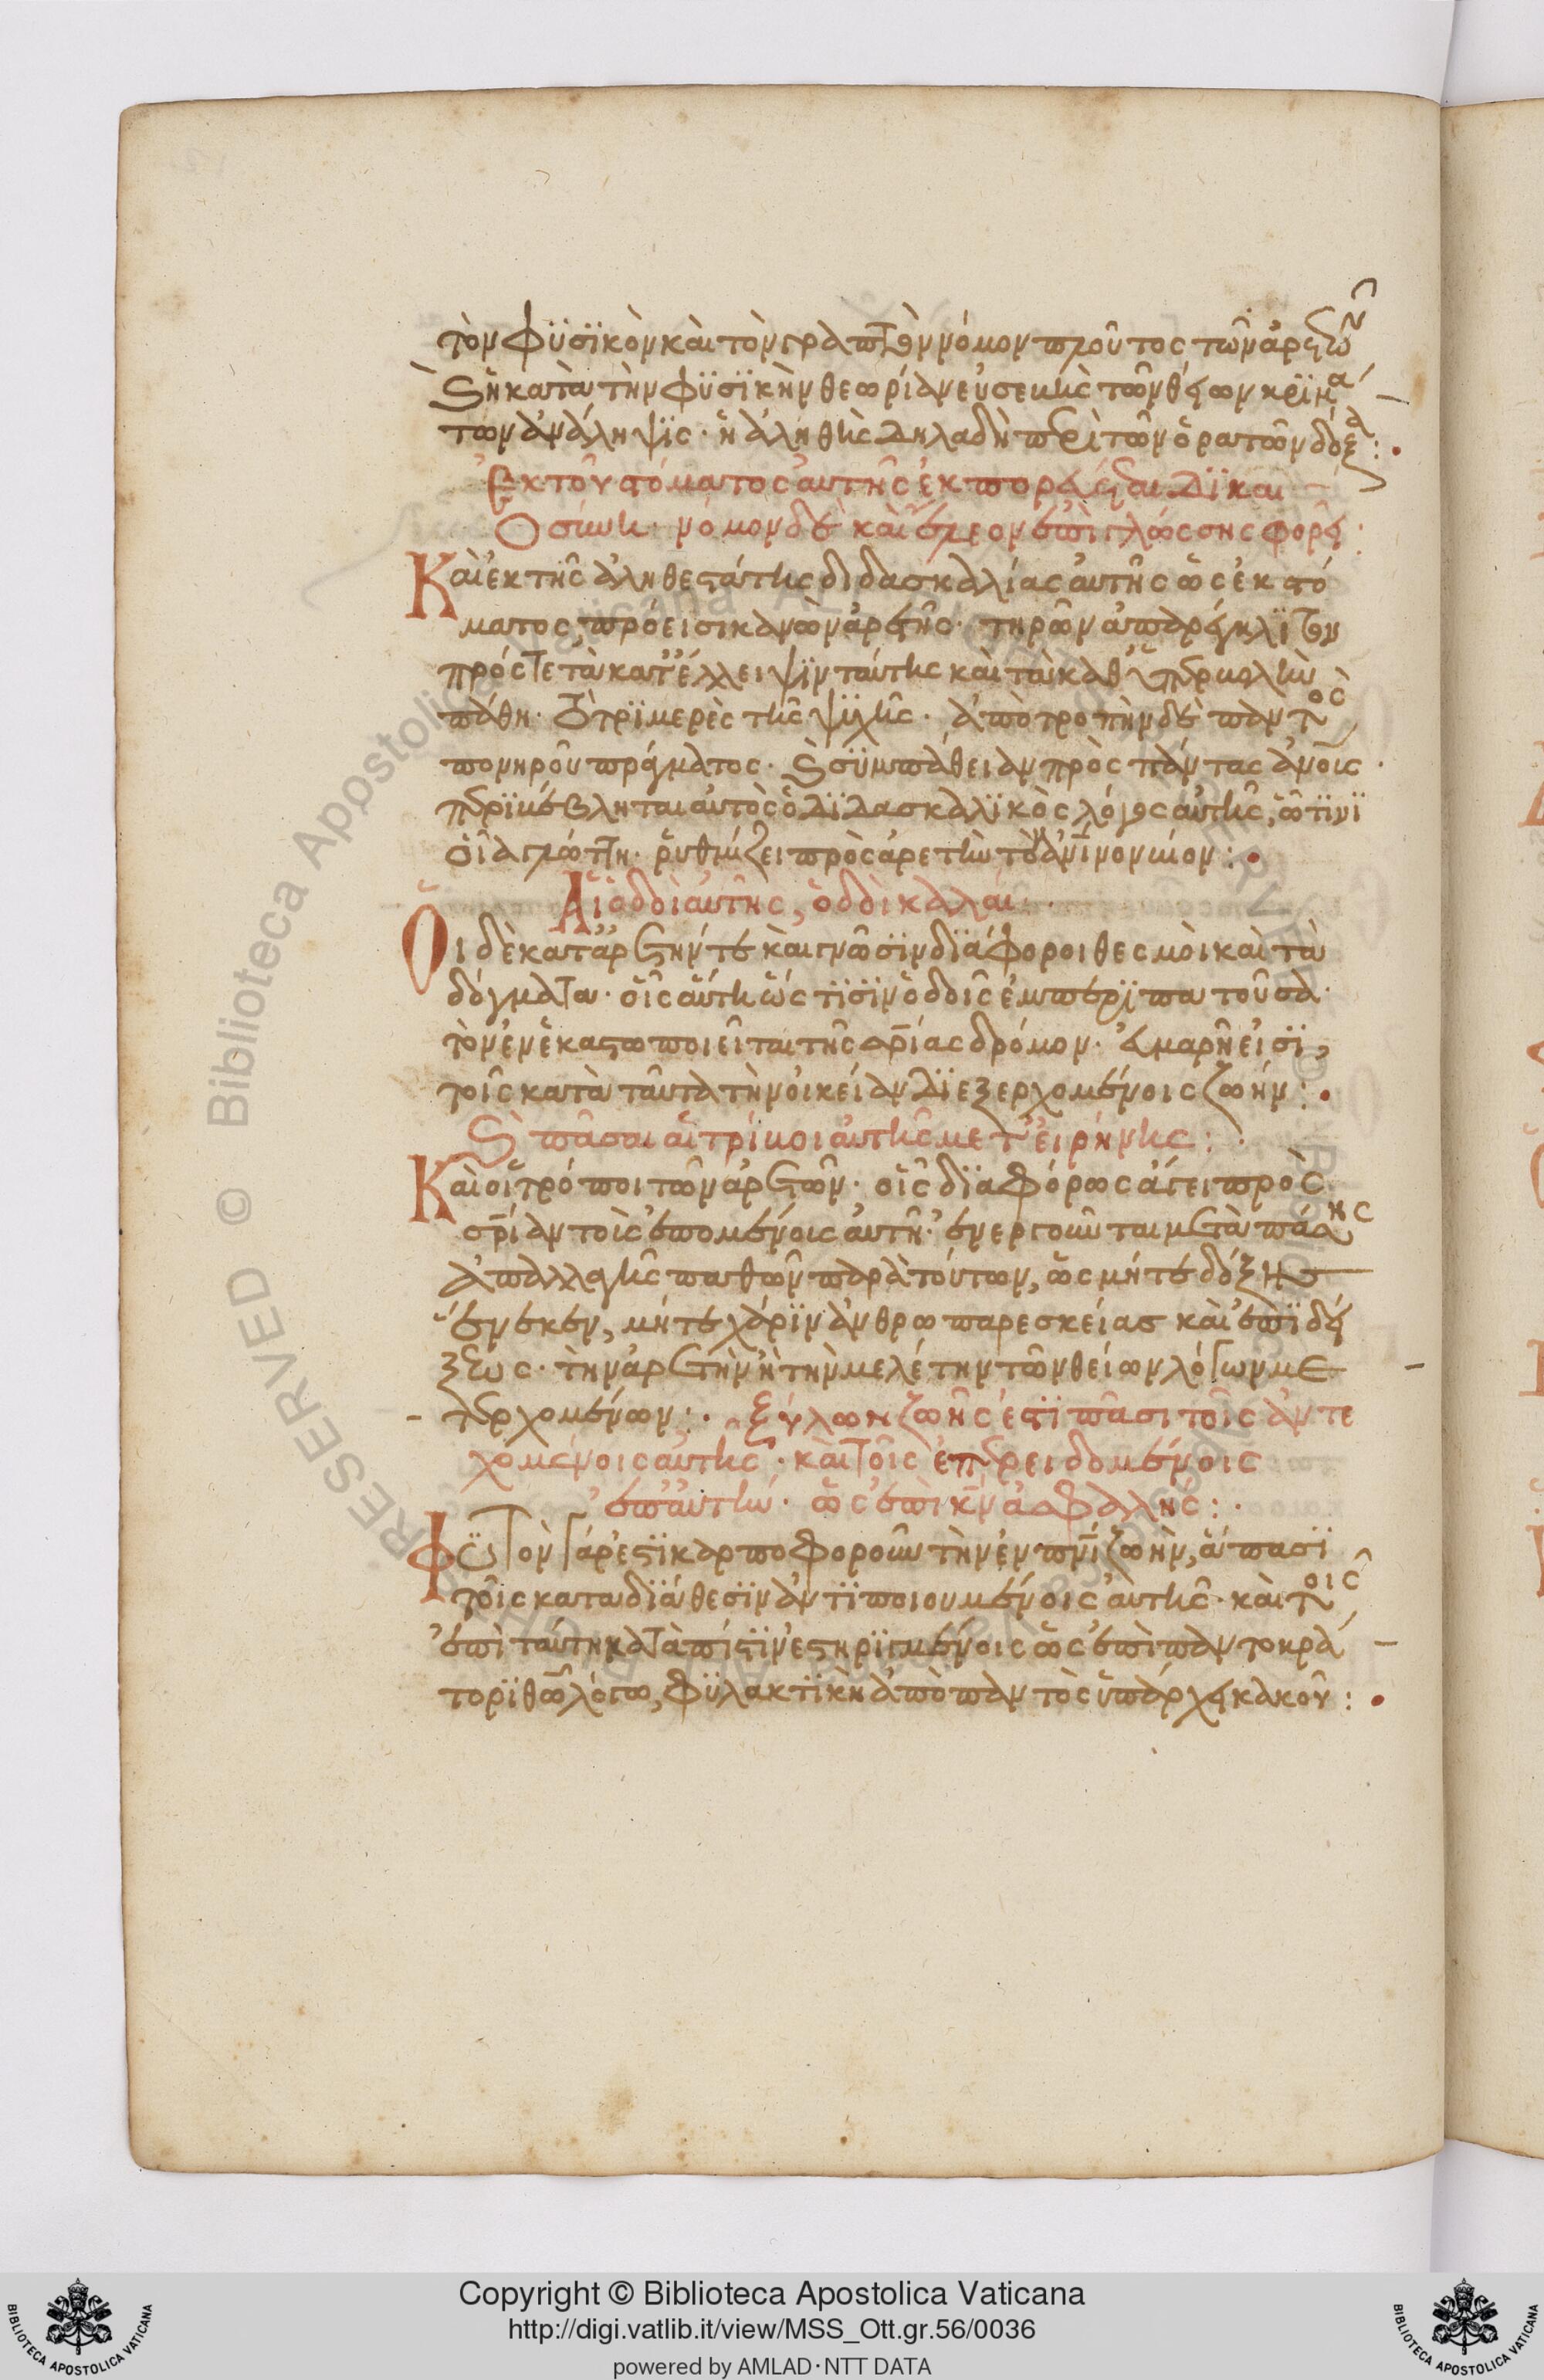 τὸν φϋσϊκὸν καὶ τὸν γραπτὸν νόμον πλοῦτος τῶν ἀρετῶν
ἢ κατὰ τὴν φϋσϊκὴν θεωρίαν εὐσεβὴς τῶν θείων κριμά
των ἀνάληψϊς· ἡ ἀληθὴς δηλαδὴ περὶ τῶν ὁρατῶν δόξα:
Ἐκ τοῦ στόματος αὐτῆς ἐκπορεύεται δϊκαι
οσύνη· νόμον δὲ καὶ ἔλεον ἐπὶ γλώσσης φορεῖ·
Καὶ ἐκ τῆς ἀληθεστάτης διδασκαλίας αὐτῆς ὡς ἐκ στό
ματος, πρόεισι κανὼν ἀρετῆς· τηρῶν ἀπαρέγκλϊτον
πρός τε τὰ κατ' ἔλλειψϊν ταύτης καὶ τὰ καθ' ὑπερβολὴν
πάθη· τὸ τρϊμερὲς τῆς ψϋχῆς· ἀποτροπὴν δὲ παντὸς
πονηροῦ πράγματος· καὶ σϋμπάθειαν πρὸς πάντας ἀνοις·
περϊβέβληται αὐτὸς ὁ δϊδασκαλϊκὸς λόγος αὐτῆς, ᾧ τϊνϊ
οἷα γλώττη· ῥυθμίζει πρὸς ἀρετὴν τὸν ἀνϊνον βίον:
Αἱ ὁδοὶ αὐτῆς, ὁδοὶ καλαί·
Οἱ δὲ κατ' ἀρετήν τε καὶ γνῶσϊν δϊάφοροι θεσμοὶ καὶ τὰ
δόγματα· οἷς αὕτη ὥς τϊσϊν ὁδοῖς ἐμπερϊπατοῦσα·
τὸν ἐν ἑκάστω ποιεῖται τῆς σρίας δρόμον·
τοῖς κατὰ ταῦτα τὴν οἰκείαν δϊεξερχομένοις ζωήν:
καὶ πᾶσαι αἱ τρίβοι αὐτῆς μετ' εἰρήνης:
Καὶ οἱ τρόποι τῶν ἀρετῶν· οἷς δϊαφόρως ἄγει πρὸς
σρίαν τοῖς ἑπομένοις αὐτῆ· ἐνεργοῦνται μετὰ πάσης
ἀπαλλαγῆς παθῶν παρὰ τούτων, ὡς μήτε δόξης
ἕνεκεν, μήτε χάρϊν ἀνθρωπαρεσκείας καὶ ἐπϊδεί
ξεως· τὴν ἀρετὴν ἢ τὴν μελέτην τῶν θείων λόγων με
τερχομένων: ξύλων ζωῆς ἐστϊ πᾶσι τοῖς ἀντε
χομένοις αὐτῆς· καὶ τοῖς ἐπερειδομένοις
ἐπ' αὐτὴν· ὡς ἐπὶ κν ἀσφαλής:
Φϋτὸν γάρ ἐστϊ καρποφοροῦν τὴν ἐν πνϊ ζωὴν, ἅπασϊ
τοῖς κατα δϊάθεσϊν ἀντϊποιουμένοις αὐτῆς· καὶ τοῖς
ἐπὶ ταύτη κατὰ πίστϊν ἐστηρϊγμένοις ὡς ἐπὶ παντοκρά
τορϊ θῶ λόγω, φϋλακτϊκὴ ἀπὸ παντὸς ὑπάρχει κακοῦ:
Biblioteca Apostolica Vaticana
RESERVED © Biblioteca Apostolica
Copyright © Biblioteca Apostolica Vaticana
http://digi.vatlib.it/view/MSS_Ott.gr.56/0036
powered by AMLAD·NTT DATA
BIBLIOTECA APOSTOLICA VATICANA
BIBLIOTECA APOSTOLICA VATICANA